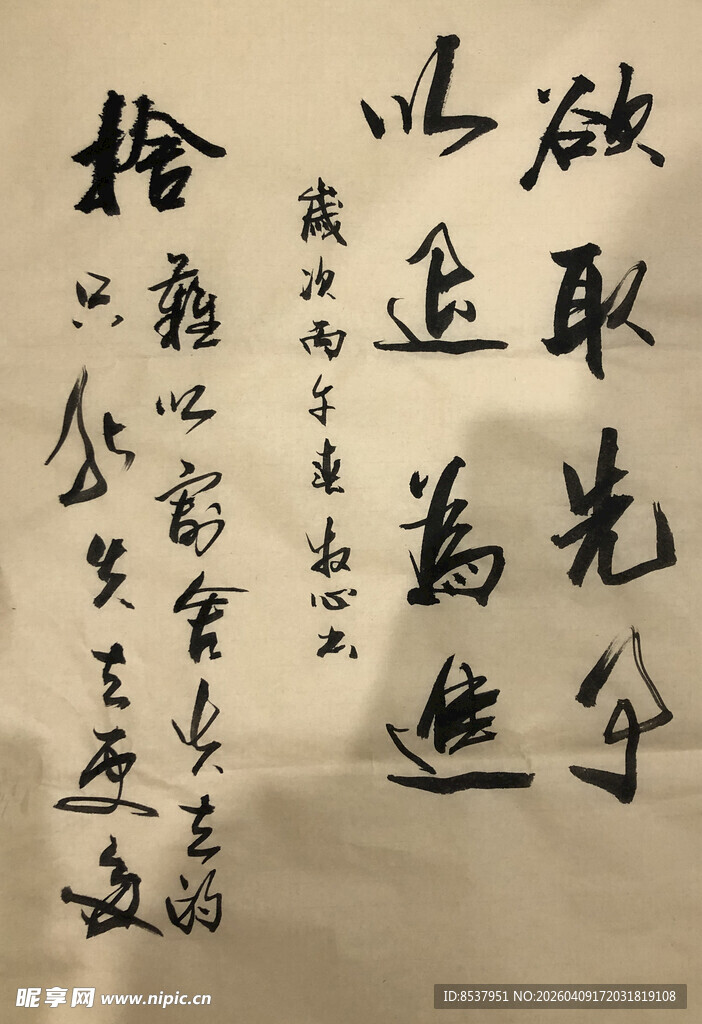 欲取先予
以退為進
歲次丙午春牧心书
捨
難以割舍失去的
只能失去更多
昵享网 www.nipic.cn
ID:8537951 NO:20260409172031819108